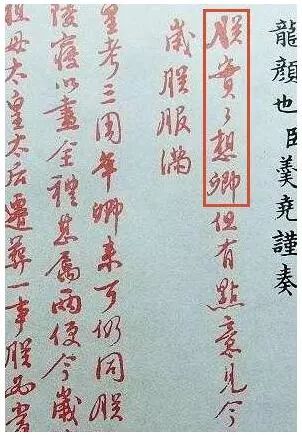 龍顏也臣羹堯謹奏
朕實〻想卿但有點意見今
歲朕服滿
皇考三周年卿來可仍同朕
陵寢以盡全禮甚屬兩便今歲
祖母太皇太后遷葬一事朕